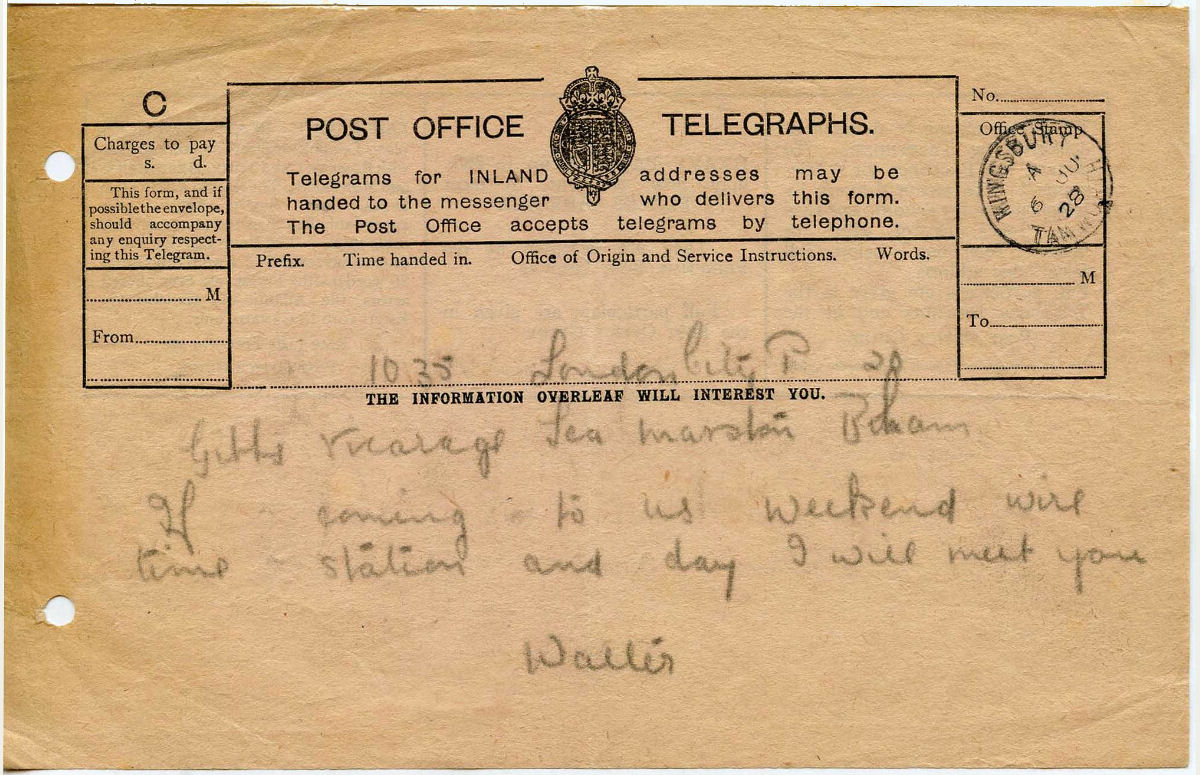 C
Charges to pay
s. d.
This form, and if
possible the envelope,
should accompany
any enquiry respect-
ing this Telegram.
M
From
POST OFFICE TELEGRAPHS.
Telegrams for INLAND addresses may be
handed to the messenger who delivers this form.
The Post Office accepts telegrams by telephone.
Prefix. Time handed in. Office of Origin and Service Instructions. Words.
No.
Office Stamp
KINGSBURY
A
6 JU
28
TAMWORTH
M
To
10 35 London City T 20
THE INFORMATION OVERLEAF WILL INTEREST YOU.
Gibbs Vicarage Lea Marston Bham
If coming to us weekend wire
time station and day I will meet you
Walter